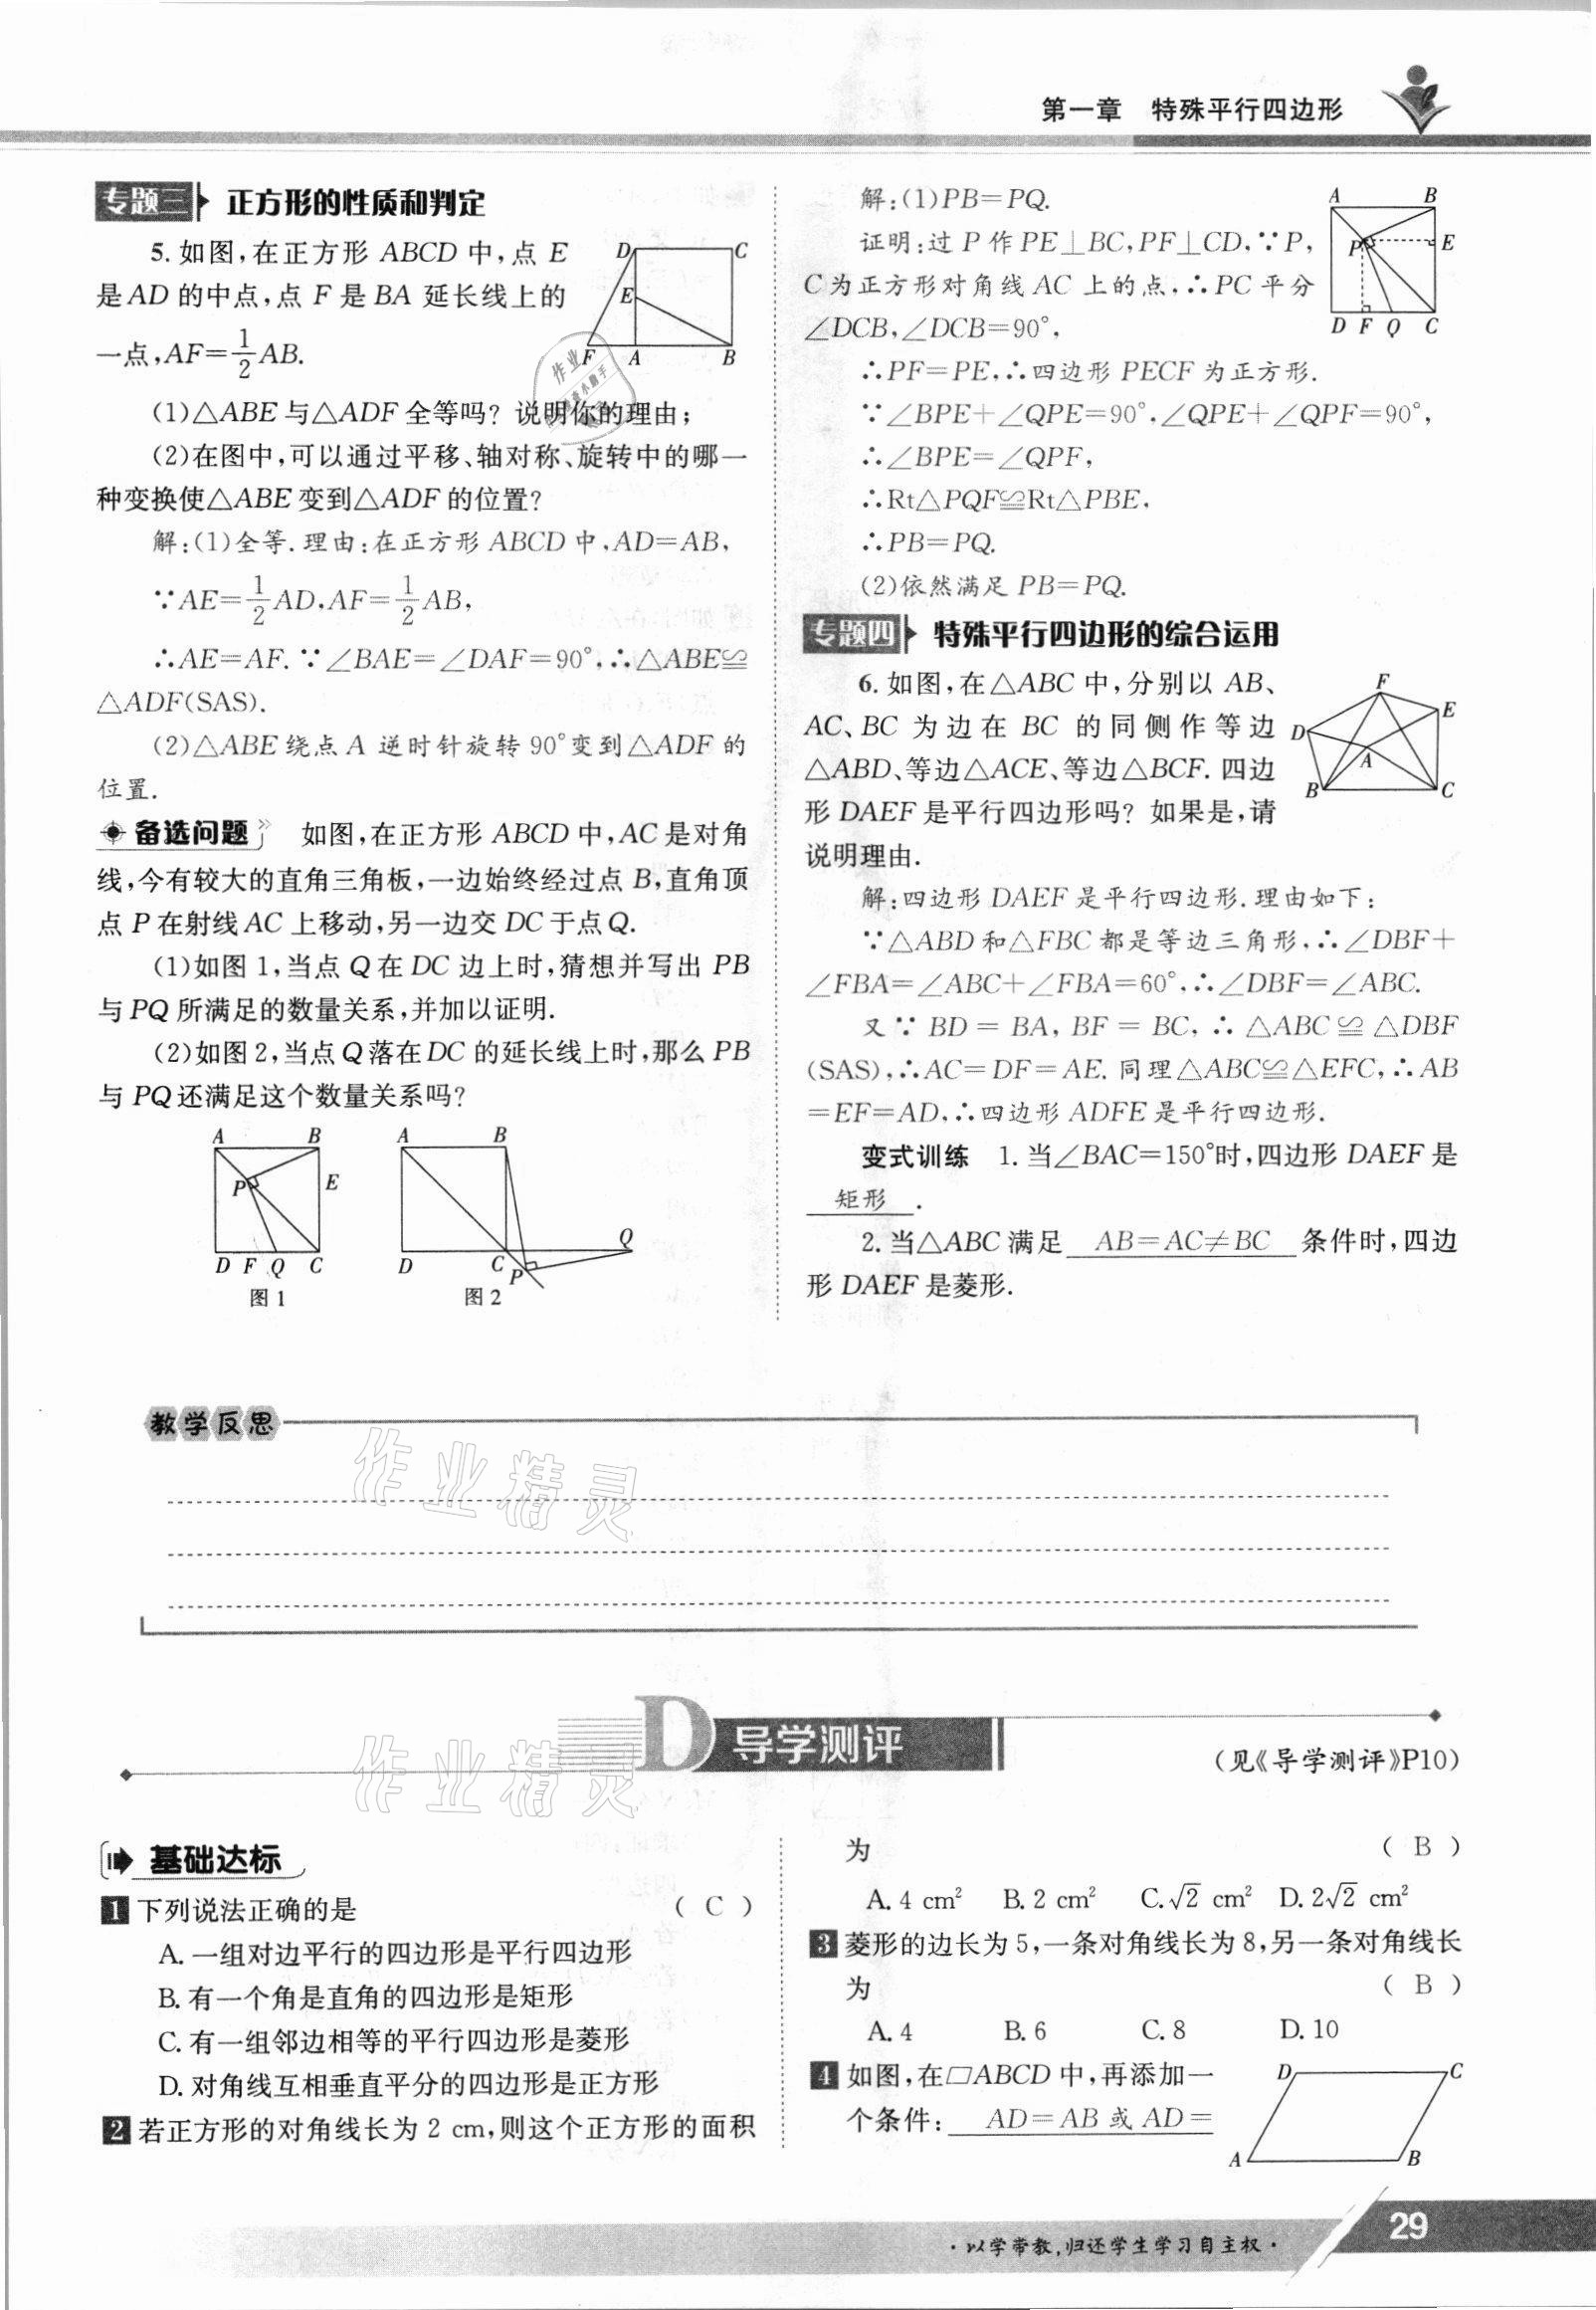 第一章 特殊平行四边形
专题三 正方形的性质和判定
5.如图,在正方形 ABCD 中,点 E
是AD 的中点,点 F 是 BA 延长线上的
一点,AF=1/2AB.
D C
E
F A B
(1)△ABE 与△ADF 全等吗? 说明你的理由;
(2)在图中,可以通过平移、轴对称、旋转中的哪一
种变换使△ABE 变到△ADF 的位置?
解:(1)全等.理由:在正方形 ABCD 中,AD=AB,
∵AE=1/2AD,AF=1/2AB,
∴AE=AF.∵∠BAE=∠DAF=90°,∴△ABE≌
△ADF(SAS).
(2)△ABE 绕点 A 逆时针旋转 90°变到△ADF 的
位置.
备选问题 如图,在正方形 ABCD 中,AC 是对角
线,今有较大的直角三角板,一边始终经过点 B,直角顶
点 P 在射线 AC 上移动,另一边交 DC 于点 Q.
(1)如图 1,当点 Q 在 DC 边上时,猜想并写出 PB
与 PQ 所满足的数量关系,并加以证明.
(2)如图 2,当点 Q 落在 DC 的延长线上时,那么 PB
与 PQ 还满足这个数量关系吗?
A B A B
P E
Q
D F Q C D C P
图 1 图 2
解:(1)PB=PQ.
证明:过 P 作 PE⊥BC,PF⊥CD,∵P,
C 为正方形对角线 AC 上的点,∴PC 平分
∠DCB,∠DCB=90°,
A B
P E
D F Q C
∴PF=PE,∴四边形 PECF 为正方形.
∵∠BPE+∠QPE=90°,∠QPE+∠QPF=90°,
∴∠BPE=∠QPF,
∴Rt△PQF≌Rt△PBE,
∴PB=PQ.
(2)依然满足 PB=PQ.
专题四 特殊平行四边形的综合运用
6.如图,在△ABC 中,分别以 AB、
AC、BC 为边在 BC 的同侧作等边
△ABD、等边△ACE、等边△BCF.四边
形 DAEF 是平行四边形吗? 如果是,请
说明理由.
F
E
D
A
B C
解:四边形 DAEF 是平行四边形.理由如下:
∵△ABD 和△FBC 都是等边三角形,∴∠DBF+
∠FBA=∠ABC+∠FBA=60°,∴∠DBF=∠ABC.
又∵ BD = BA, BF = BC, ∴ △ABC ≌ △DBF
(SAS),∴AC=DF=AE.同理△ABC≌△EFC,∴AB
=EF=AD,∴四边形 ADFE 是平行四边形.
变式训练 1.当∠BAC=150°时,四边形 DAEF 是
矩形.
2.当△ABC 满足 AB=AC≠BC 条件时,四边
形 DAEF 是菱形.
教学反思
作业精灵
D 导学测评
(见《导学测评》P10)
作业精灵
基础达标
1 下列说法正确的是 ( C )
A.一组对边平行的四边形是平行四边形
B.有一个角是直角的四边形是矩形
C.有一组邻边相等的平行四边形是菱形
D.对角线互相垂直平分的四边形是正方形
2 若正方形的对角线长为 2 cm,则这个正方形的面积
为 ( B )
A.4 cm² B.2 cm² C.√2 cm² D.2√2 cm²
3 菱形的边长为 5,一条对角线长为 8,另一条对角线长
为 ( B )
A.4 B.6 C.8 D.10
4 如图,在□ABCD 中,再添加一
个条件: AD=AB 或 AD=
D C
A B
·以学带教,归还学生学习自主权·
29